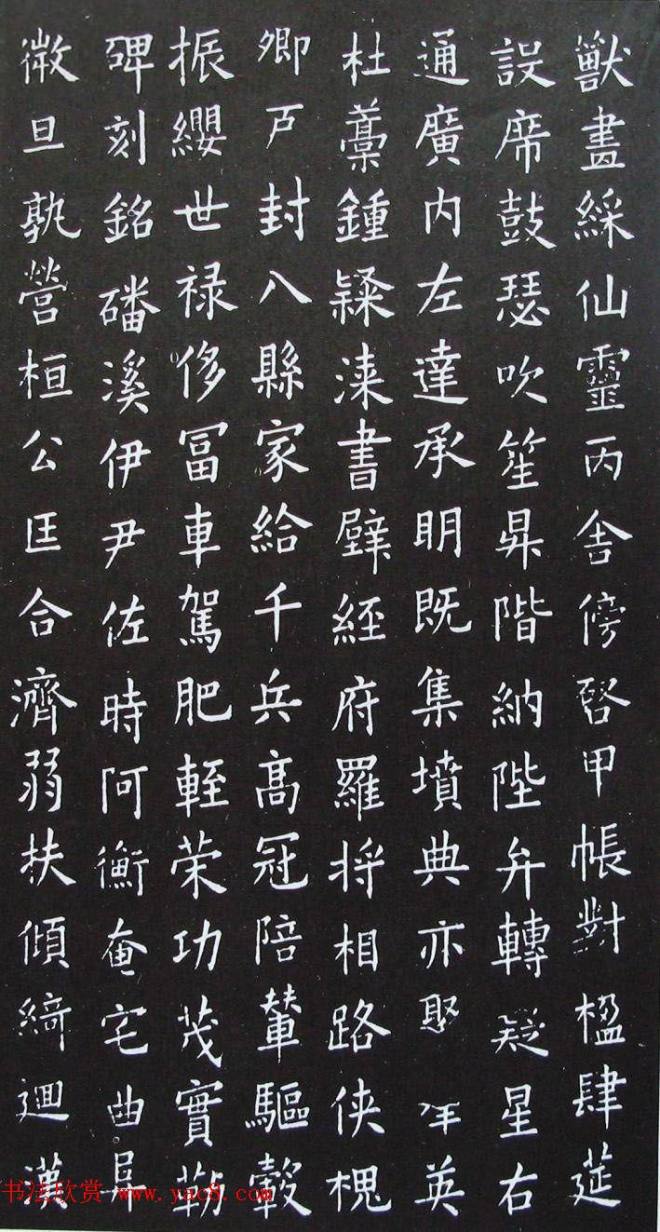 獸畫綵仙靈丙舍傍啓甲帳對楹肆莚
設席鼓瑟吹笙昇階納陛弁轉疑星右
通廣內左達承明既集墳典亦聚羣英
杜藁鍾隸漆書壁經府羅將相路俠槐
卿戶封八縣家給千兵高冠陪輦驅轂
振纓世禄侈冨車駕肥輕荣功茂實勒
碑刻銘磻溪伊尹佐時阿衡奄宅曲阜
微旦孰營桓公匡合濟弱扶傾綺迴漢
书法欣赏 www.yac8.com